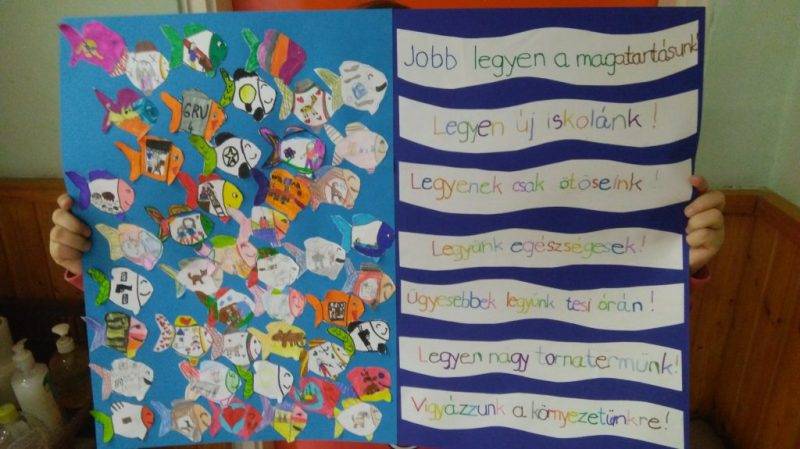 GRU
4
Jobb legyen a magatartásunk!
Legyen új iskolánk!
Legyenek csak ötöseink!
Legyünk egészségesek!
Ügyesebbek legyünk tesi órán!
Legyen nagy tornatermünk!
Vigyázzunk a környezetünkre!